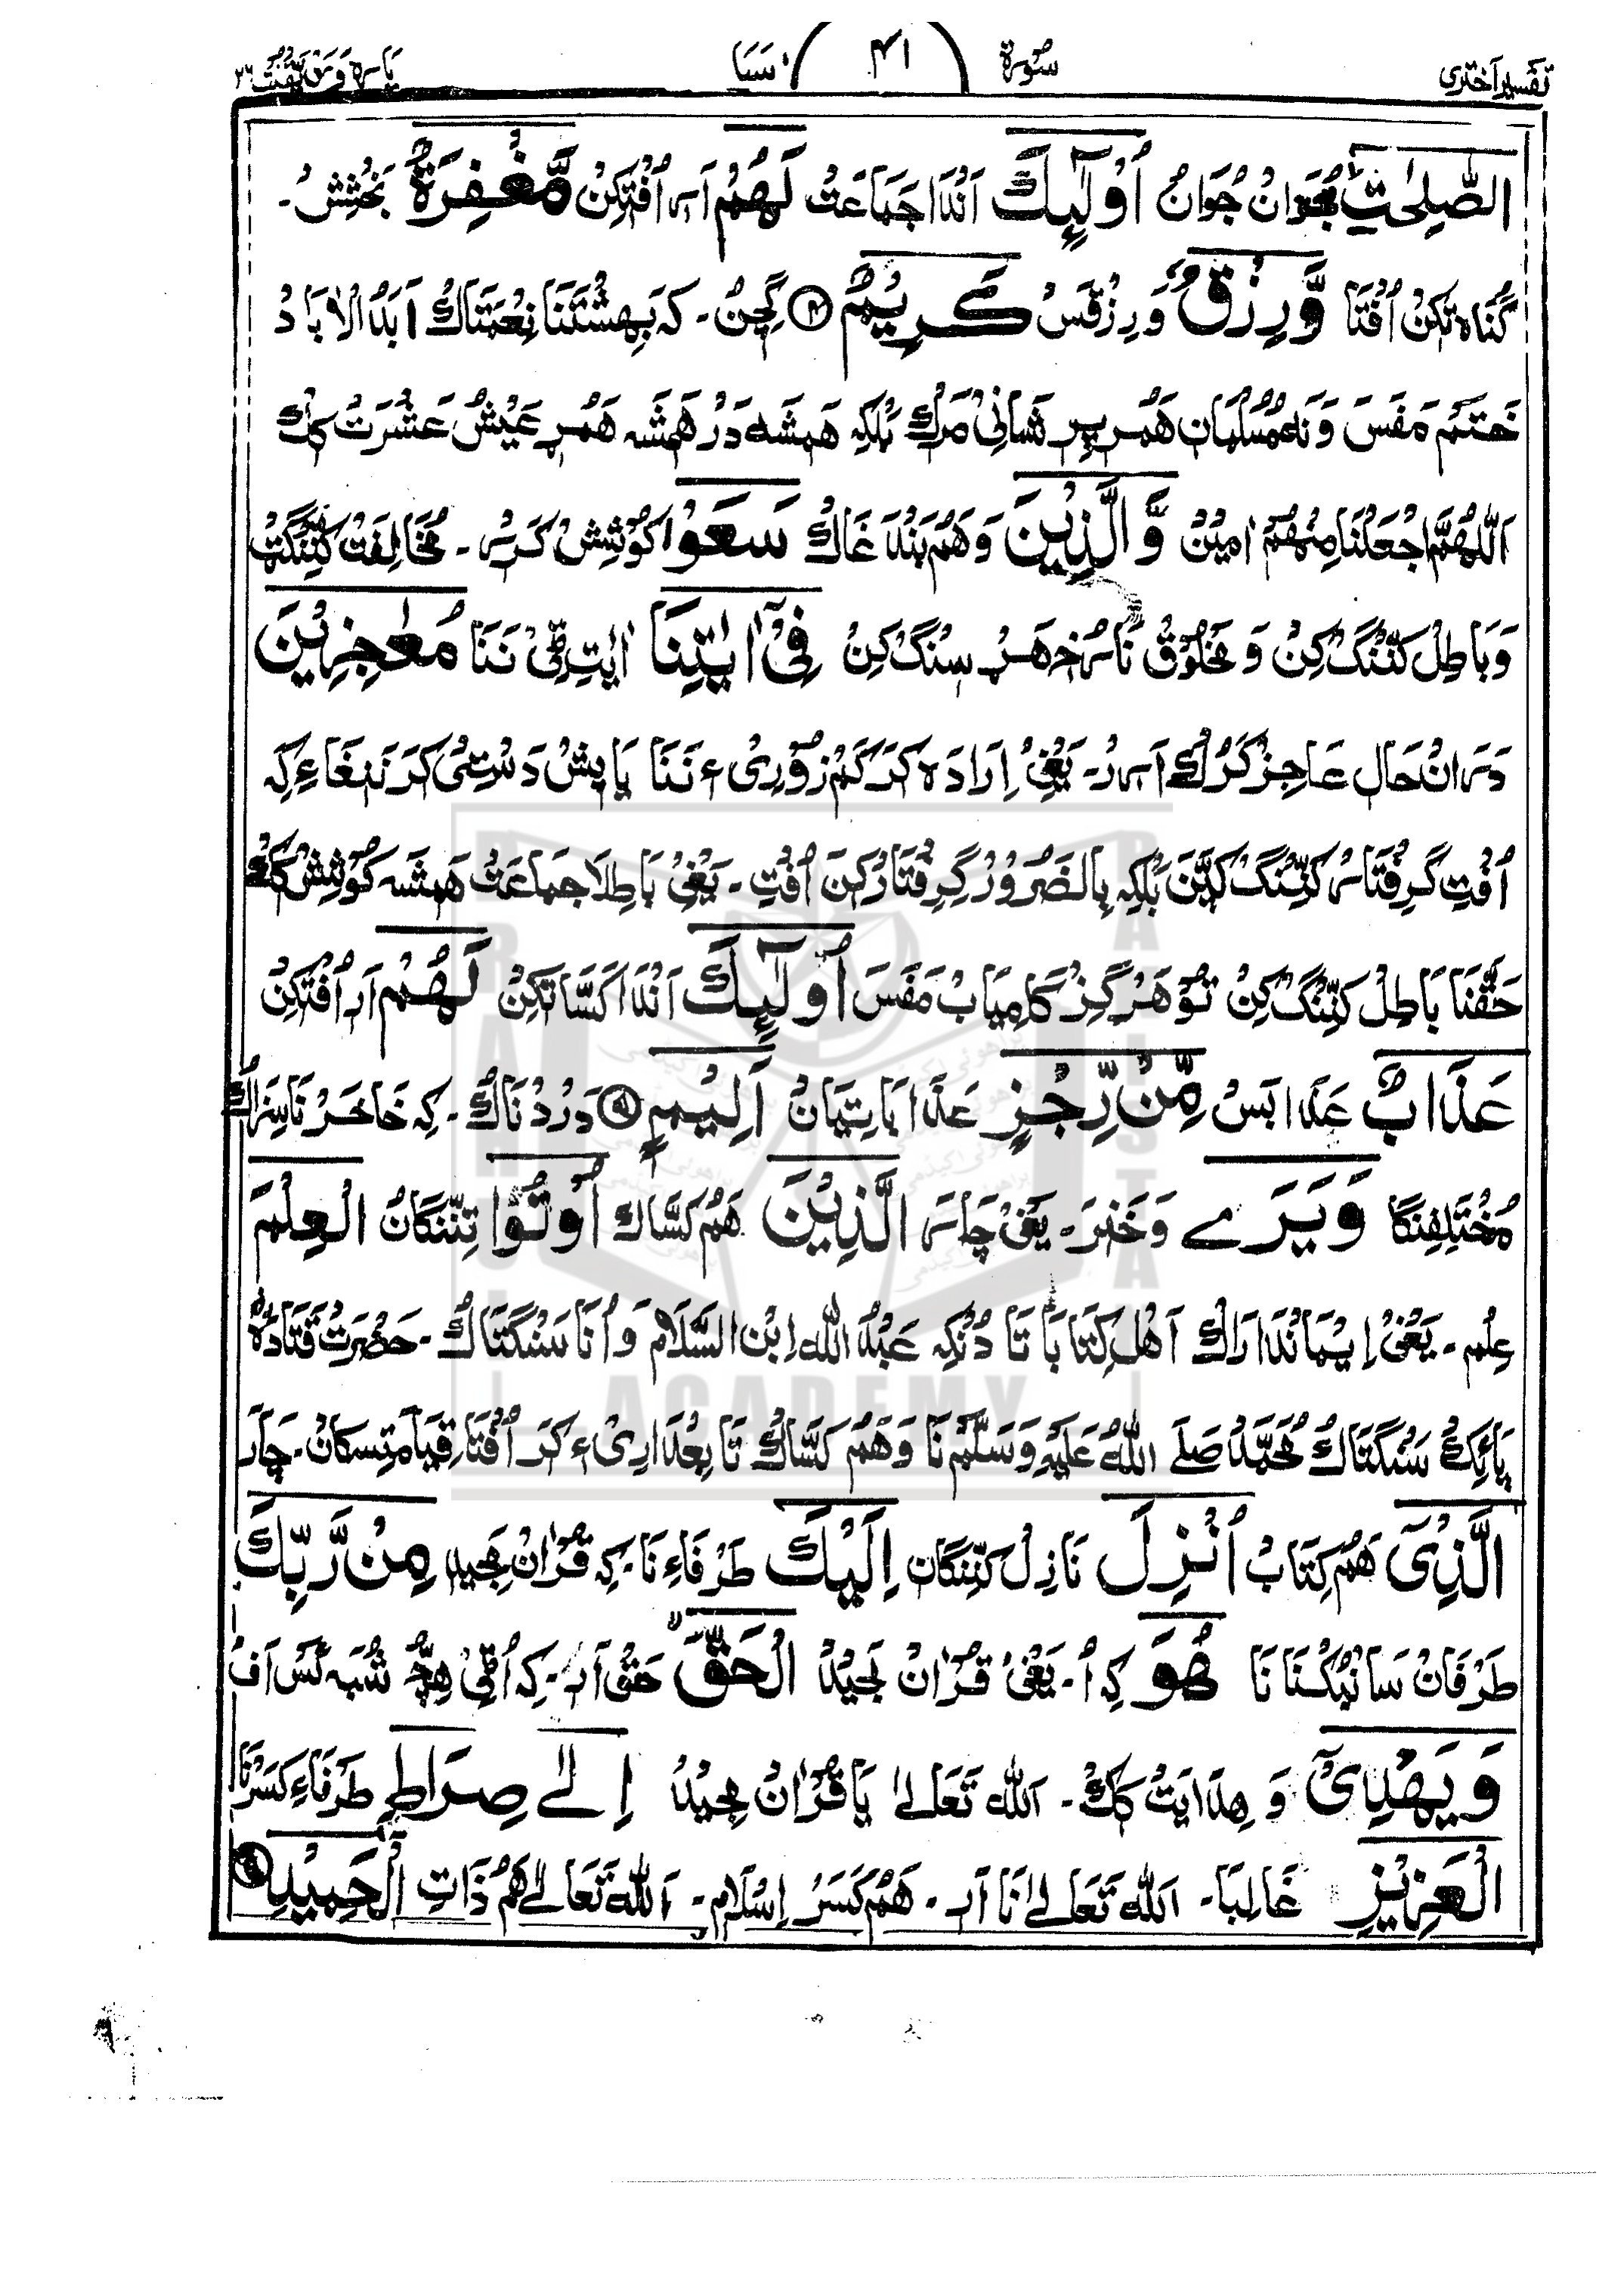 تفسیر اختری سُورة ۴۱ سَبَا پاره وَمَن یَّقْنُتْ ۲۲
الصّٰلِحٰتِ جُوَانْ جُوَانُ اُولٰٓئِكَ اَنْدَا جَمَاعَتْ لَهُمْ اَرِ اُفْتِكِنْ مَّغْفِرَةٌ بَخْشِشْ۔
گُنَاه تِكِنْ اُفْتَا وَّرِزْقٌ وَ رِزْقَسْ كَرِيْمٌ ۴ گِچِنْ۔ كِه بِهِشْتَنَا نِعْمَتَاكْ اَبَدُ الْاٰبَادْ
خَتَمْ مَفَسَ وَنَه مُسُلْمَان هَمْر پِرِشَانِیْ مَرِكْ بَلْكِه هَمِشَه دَرْ هَمِشَه هَمْر عَیْشُ عَشْرَتْ كِكْ
اَللّٰهُمَّ اجْعَلْنَا مِنْهُمْ اٰمِیْنْ وَالَّذِيْنَ وَهَمْ بَنْدَ غَاكْ سَعَوْا كَوْشِشْ كَرِرْ۔ مُخَالِفَتْ كِنِّنْگَتْ
وَبَاطِلْ كَنِّنْگْ كِنْ وَ مَخْلُوْقْ نَا سُرْخَهَرْ سِنْگْ كِنْ فِیْٓ اٰيٰتِنَا اٰیٰتِ ٹِیْ نَنَا مُعٰجِزِيْنَ
دَرَانْ حَالِ عَاجِزْ كَرُكْ اَرِرْ۔ یَعْنِیْ اِرَادَه كَرَكَمْ زُوْرِیْ ءِ نَنَا یَا پِشْ دَسْتِیْ كَرَ نَنْغَاءِ كِه
اُفْتِ گِرِفْتَار كَنِّنْگْ كَپَّنَ بَلْكِه بِالضَّرُوْرْ گِرِفْتَارْ كِنَ اُفْتِ۔ یَعْنِیْ بَاطِلَا جَمَاعَتْ هَمِشَه كَوْشِشْ كَكْ
حَقَّنَا بَاطِلْ كَنِّنْگْ كِنْ تُوْ هَرْگِزْ كَامِیَابْ مَفَسَ اُولٰٓئِكَ اَنْدَا كَسَّاتِكِنْ لَهُمْ اَرِ اُفْتِكِنْ
عَذَابٌ عَذَابَسْ مِّنْ رِّجْزٍ عَذَابَاتِیَانْ اَلِيْمٌ ۵ دَرْدْنَاكْ۔ كِه خَاخَرْ نَا سِزَاكْ
مُخْتَلِفِنگَا وَيَرَے وَخَنِرَ۔ یَعْنِیْ چَارَ الَّذِيْنَ هَمْ كَسَّاك اُوْتُوا تِنِّنْگَانْ الْعِلْمَ
عِلْم۔ یَعْنِیْ اِیْمَانْدَارَاكْ اَهْلِ كِتَابَا تَا دُنْكِه عَبْدُ اللّٰه اِبْن السَّلَامْ وَ اُنَا سَنْگَتَاكْ۔ حَضْرَتْ قَتَادَهْ
پَائِكْ سَنْگَتَاكْ مُحَمَّدْ صَلَے اللّٰهُ عَلَیْهِ وَسَلَّمْ نَا وَهَمْ كَسَّاكْ تَابِعْدَارِیْ ءِ كَرِ اُفْتَا قِیَامَتِسْكَانْ۔ چَارَ
الَّذِیْٓ هَمْ كِتَابْ اُنْزِلَ نَازِلْ كَنِّنْگَان اِلَيْكَ طَرْفَاءِ نَا۔ كِه قُرْاٰنْ مَجِیْد مِنْ رَّبِّكَ
طَرْفَانْ سَانْبُكْنَا نَا هُوَ كِه اُ۔ یَعْنِیْ قُرْاٰنْ مَجِیْدْ الْحَقَّ حَقْ اَرِ۔ كِه اُٹِیْ هِچْ شُبَه ئَسْ اَفْ
وَيَهْدِیْٓ وَ هِدَایَتْ كِكْ۔ اَللّٰه تَعَالٰے یَا قُرْاٰنْ مَجِیْدْ اِلٰے صِرَاطِ طَرْفَاءِ كَسَرْنَا
الْعَزِيْزِ غَالِبَا۔ اَللّٰه تَعَالٰے نَا اَرِ۔ هَمْ كَسَرْ اِسْلَام۔ اَللّٰه تَعَالٰے هَمْ ذَاتِ الْحَمِيْدِ ۶